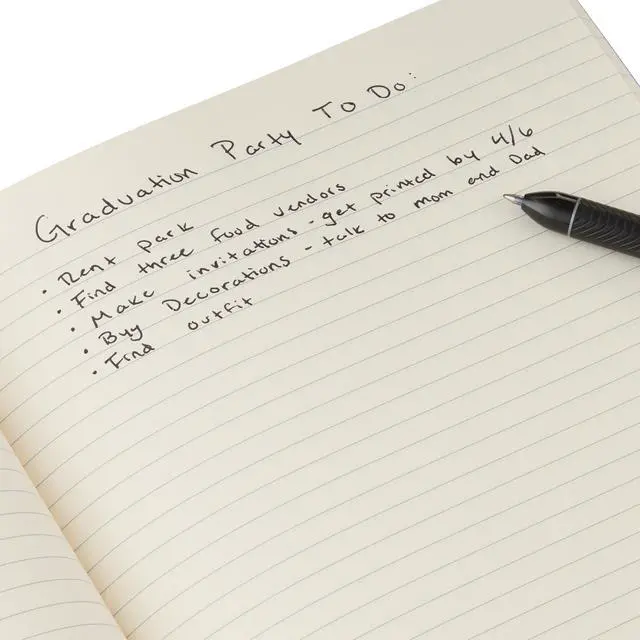 Graduation Party To Do:
• Rent Park
• Find three food vendors
• Make invitations - get printed by 4/6
• Buy Decorations - talk to mom and Dad
• Find outfit